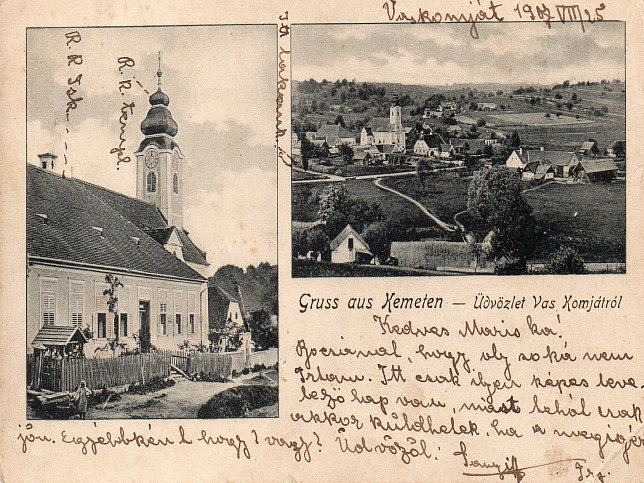 Vaskomját 1907 VIII/25
R. K. Isk.
R. K. templ.
Itt lakunk
Gruss aus Kemeten – Üdvözlet Vas Komjátról
Kedves Mariska!
Bocsánat, hogy oly soká nem
Irtam. Itt csak ilyen képes leve
lező lap van, mást tehát csak
akkor küldhetek, ha a megigér
jön. Egyébbként hogy vagy? Üdvözöl: